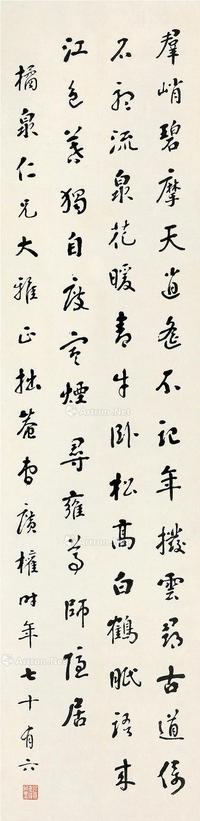 羣峭碧摩天逍遙不記年撥雲尋古道倚
石聽流泉花暖青牛卧松高白鶴眠語來
江色暮獨自下寒煙 尋雍尊師隱居
橘泉仁兄大雅正 拙菴 廣權時年七十有六
Artron.Net
Artron.Net
Artron.Net
Artron.Net